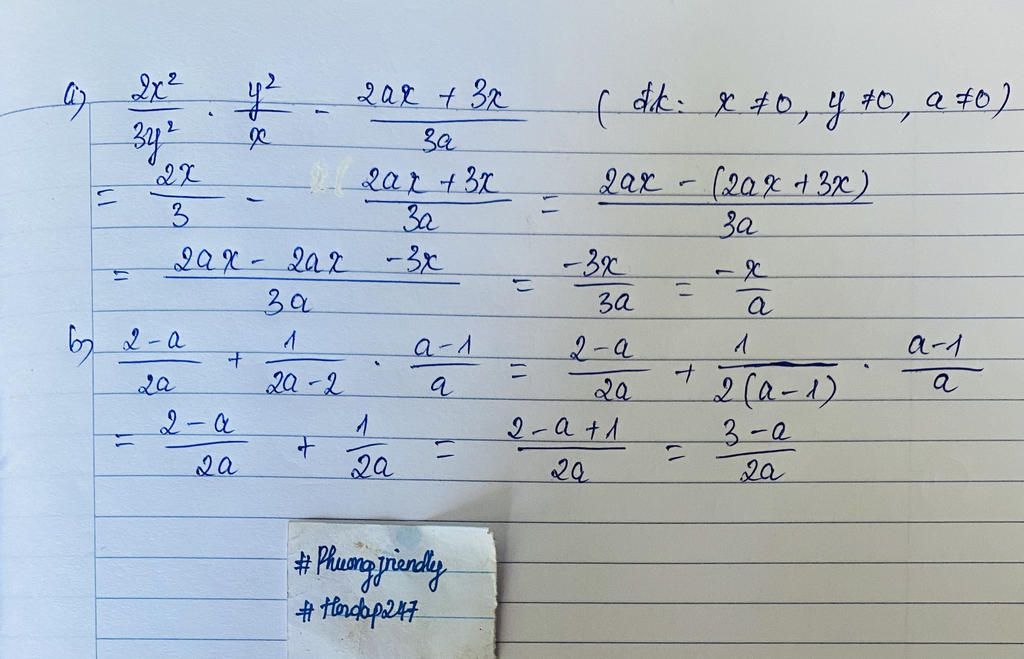 a) 2x²/3y² . y²/x - (2ax + 3x)/3a ( đk: x ≠ 0, y ≠ 0, a ≠ 0)
= 2x/3 - (2ax + 3x)/3a = (2ax - (2ax + 3x))/3a
= (2ax - 2ax - 3x)/3a = -3x/3a = -x/a
b) (2-a)/2a + 1/(2a-2) . (a-1)/a = (2-a)/2a + 1/(2(a-1)) . (a-1)/a
= (2-a)/2a + 1/2a = (2-a+1)/2a = (3-a)/2a
#Phuongfriendly
#Hoidap247